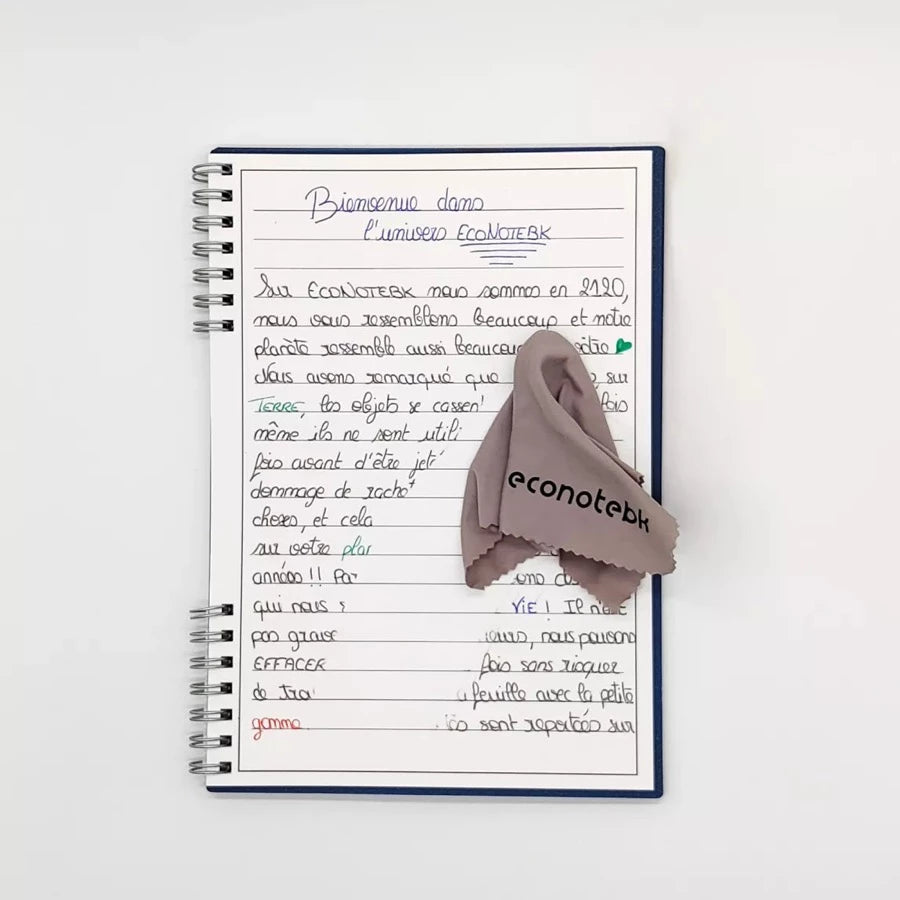 Bienvenue dans
l'univers ECONOTEBK
Sur ECONOTEBK nous sommes en 2120,
nous vous ressemblons beaucoup et notre
planète ressemble aussi beaucoup vôtre
Nous avons remarqué que sur
TERRE, les objets se cassent fois
même ils ne sont utili
fois avant d'être jeté
dommage de rachet
choses, et cela
sur votre plan
années !! Par
qui nous VIE ! Il n'est
pas grave ieurs, nous pouvons
EFFACER fois sans risquer
de feuille avec la petite
gomme sont reportés sur
econotebk